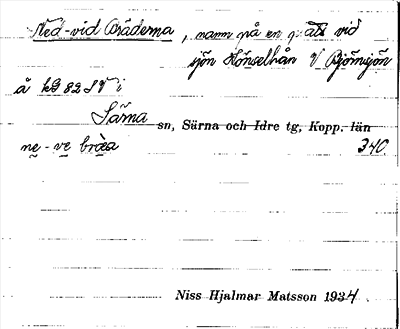 Ned-vid Bräderna, namn på en plats vid
sjön Hönselhån V Björnsjön
å kB 82 SV i
Särna sn, Särna och Idre tg, Kopp. län
ne - ve bræa 340.
Niss Hjalmar Matsson 1934.